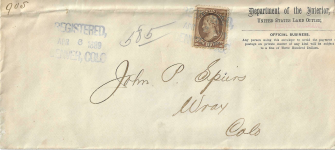 905
REGISTERED,
585
Department of the Interior,
UNITED STATES LAND OFFICE.
OFFICIAL BUSINESS.
Any person using this envelope to avoid the payment of
postage on private matter of any kind will be subject
to a fine of Three Hundred Dollars.
John P. Spiers
Wray
Colo